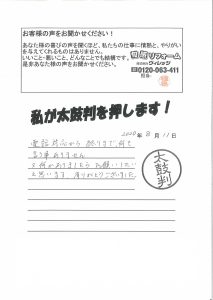 お客様の声をお聞かせください！
あなた様の喜びの声を聞くほど、私たちの仕事に情熱と、やりがい
を与えてくれるものはありません。
いいこと・悪いこと、どんなことでも結構です。
是非あなた様の声をお聞かせください。
リフォーム
0120-963-411
担当:
私が太鼓判を押します！
2020年8月11日
電話対応から 終りまで、何も
言う事ありません
又何かありましたら お願いしたい
と思います、ありがとうございました。
太鼓判